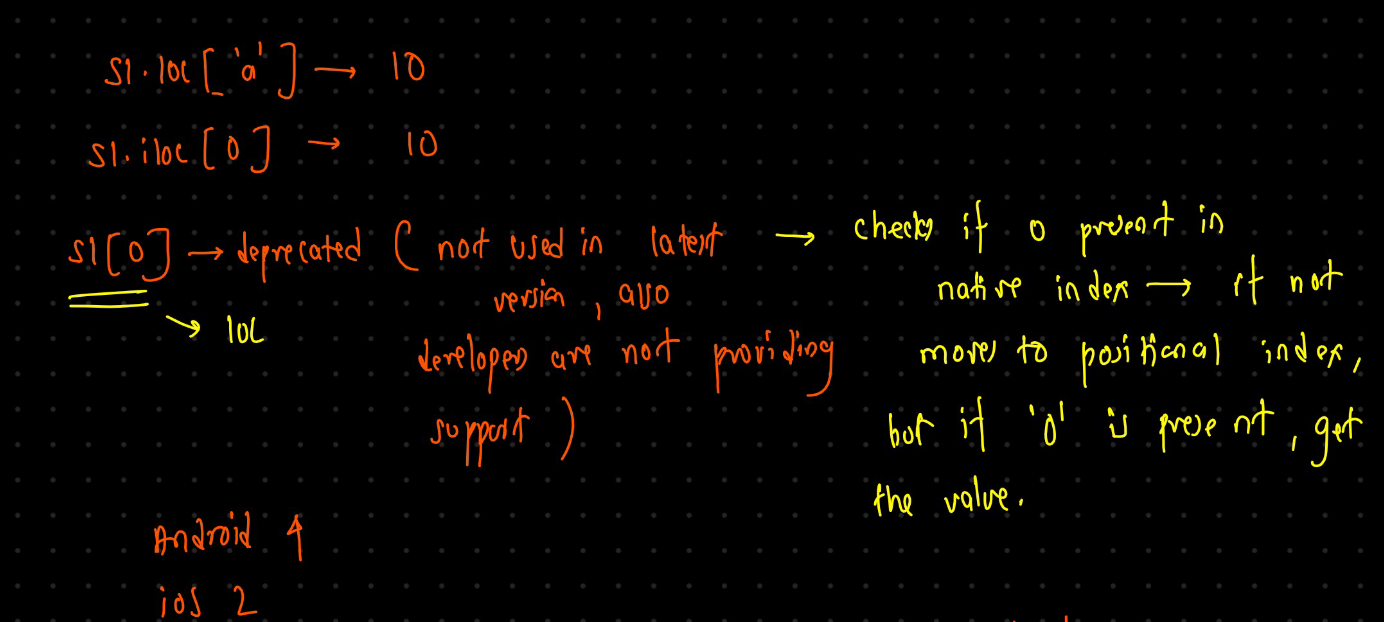 s1.loc['a'] → 10
s1.iloc[0] → 10
s1[0] → deprecated ( not used in latest
version, also
developers are not providing
support )
→ loc
→ checks if 0 present in
native index → if not
moves to positional index,
but if '0' is present, get
the value.
Android 4
ios 2